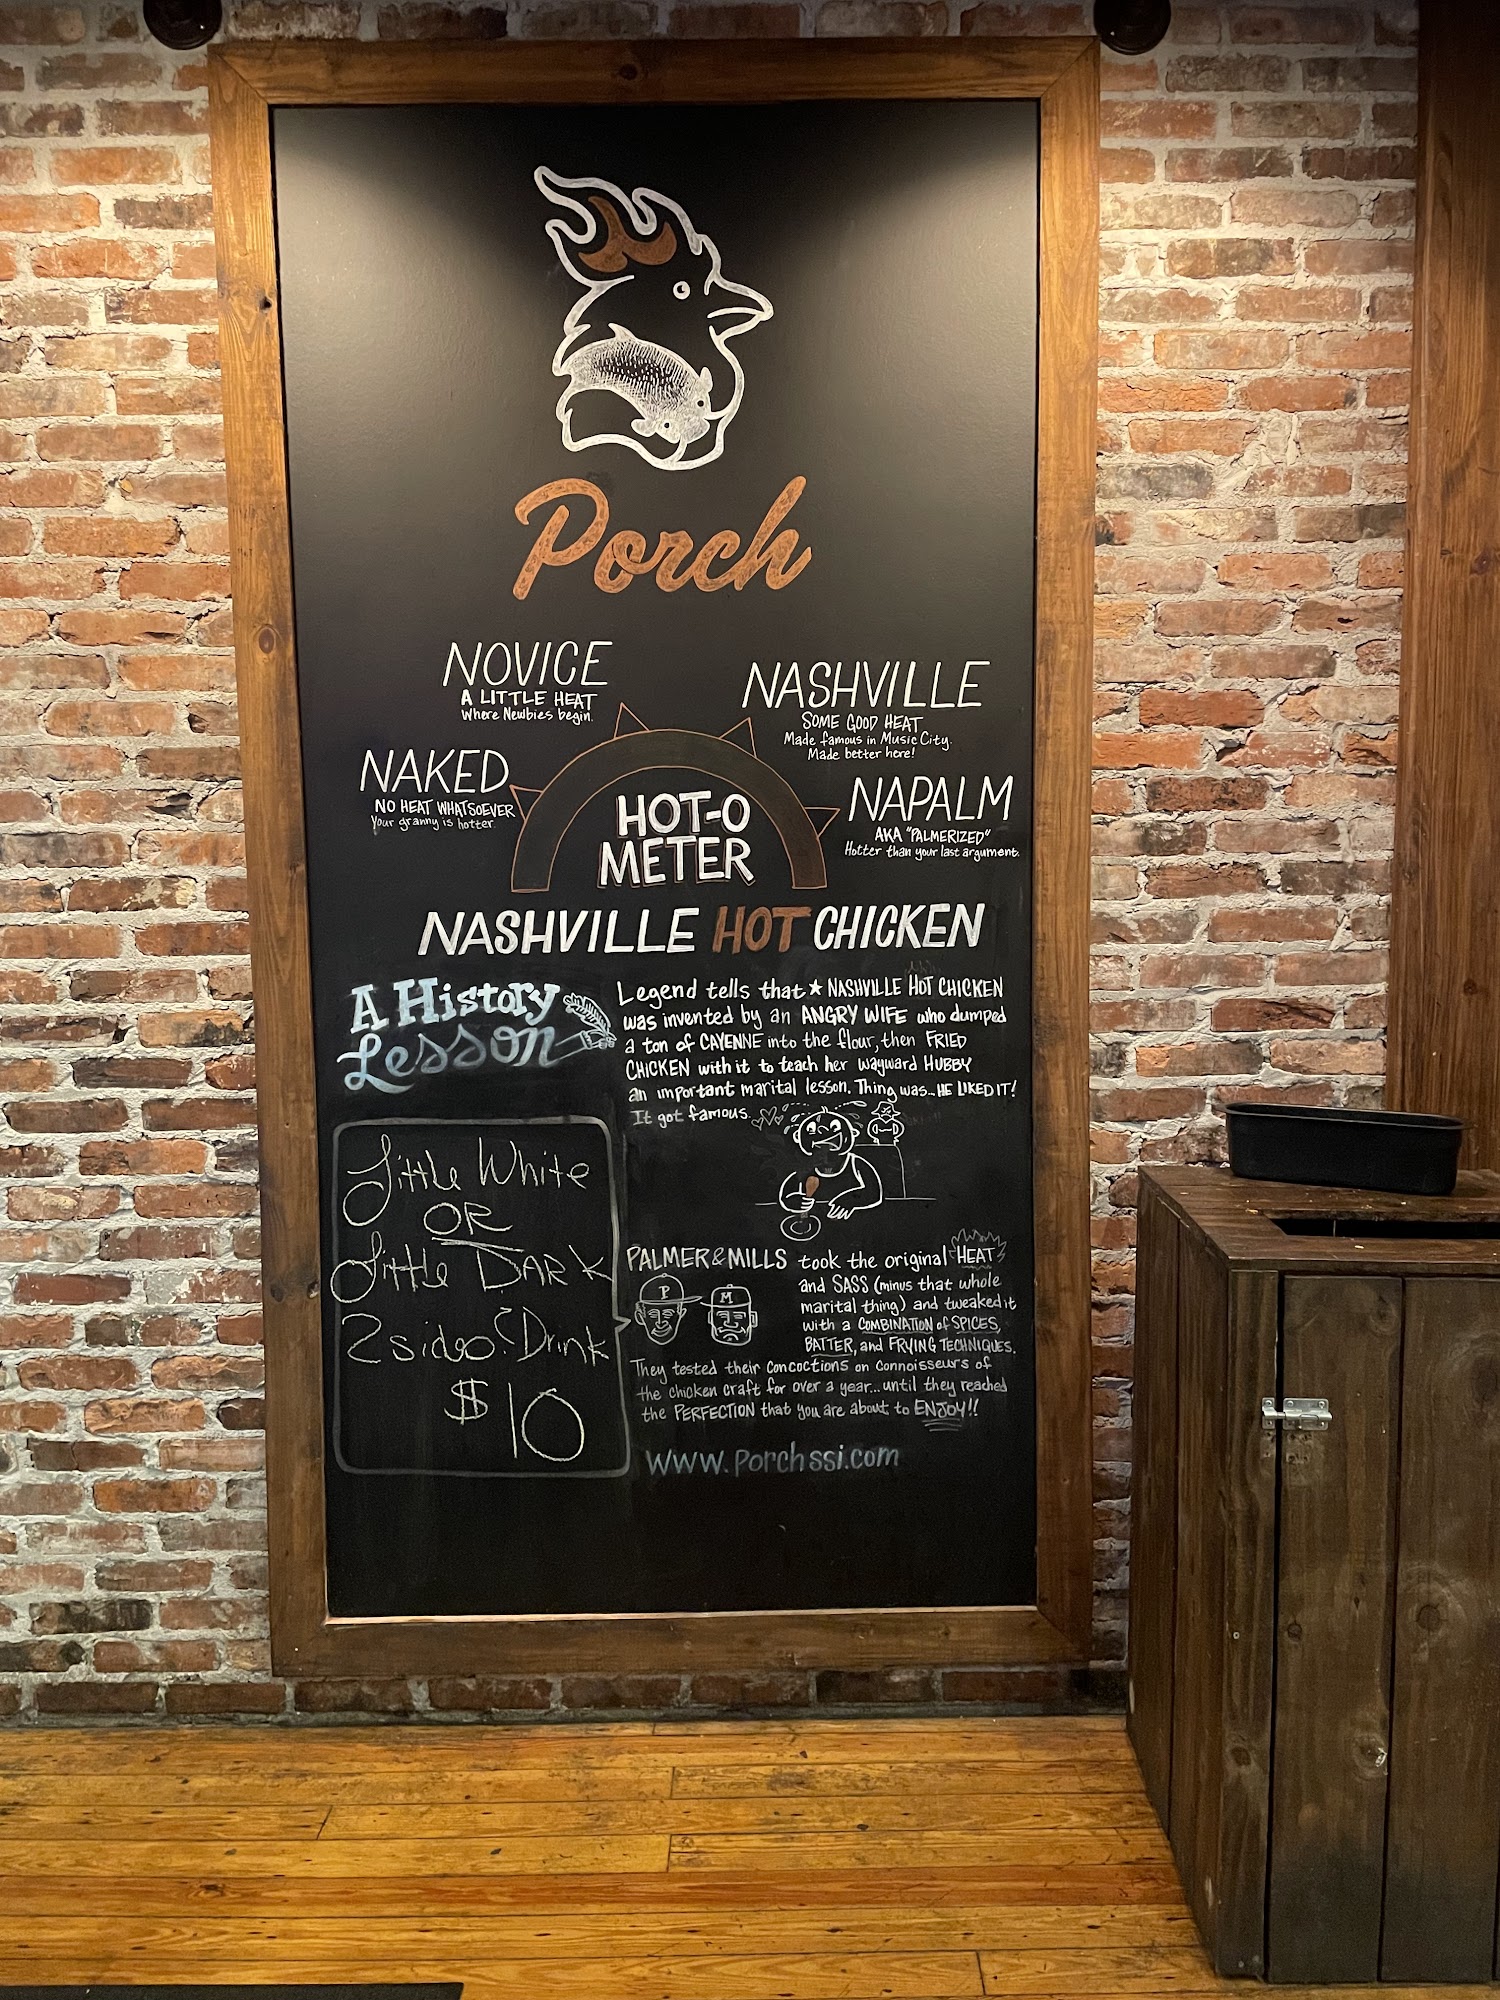 Porch
NOVICE
A LITTLE HEAT
Where Newbies begin.
NASHVILLE
SOME GOOD HEAT
Made famous in Music City.
Made better here!
NAKED
NO HEAT WHATSOEVER
Your granny is hotter.
NAPALM
AKA "PALMERIZED"
Hotter than your last argument.
HOT-O
METER
NASHVILLE HOT CHICKEN
A History
Lesson
Legend tells that ★ NASHVILLE HOT CHICKEN
was invented by an ANGRY WIFE who dumped
a ton of CAYENNE into the flour, then FRIED
CHICKEN with it to teach her wayward HUBBY
an important marital lesson. Thing was... HE LIKED IT!
It got famous.
Little White
OR
Little DARK
2 sides & Drink
$10
PALMER & MILLS took the original HEAT
and SASS (minus that whole
marital thing) and tweaked it
with a COMBINATION of SPICES,
BATTER, and FRYING TECHNIQUES.
P
M
They tested their concoctions on connoisseurs of
the chicken craft for over a year... until they reached
the PERFECTION that you are about to ENJOY!!
www.porchssi.com